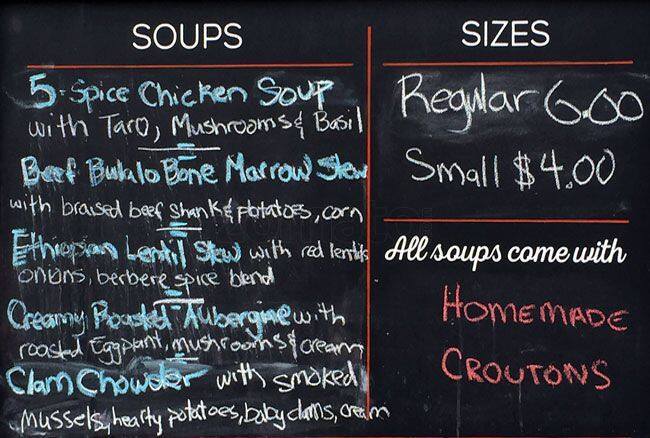 SOUPS
5-Spice Chicken Soup
with Taro, Mushrooms & Basil
Beef Bulalo Bone Marrow Stew
with braised beef shank & potatoes, corn
Ethiopian Lentil Stew with red lentils
onions, berbere spice blend
Creamy Roasted Aubergine with
roasted Eggplant, mushrooms & cream
Clam Chowder with smoked
mussels, hearty potatoes, baby clams, cream
SIZES
Regular 6.00
Small $4.00
All soups come with
HOMEMADE
CROUTONS